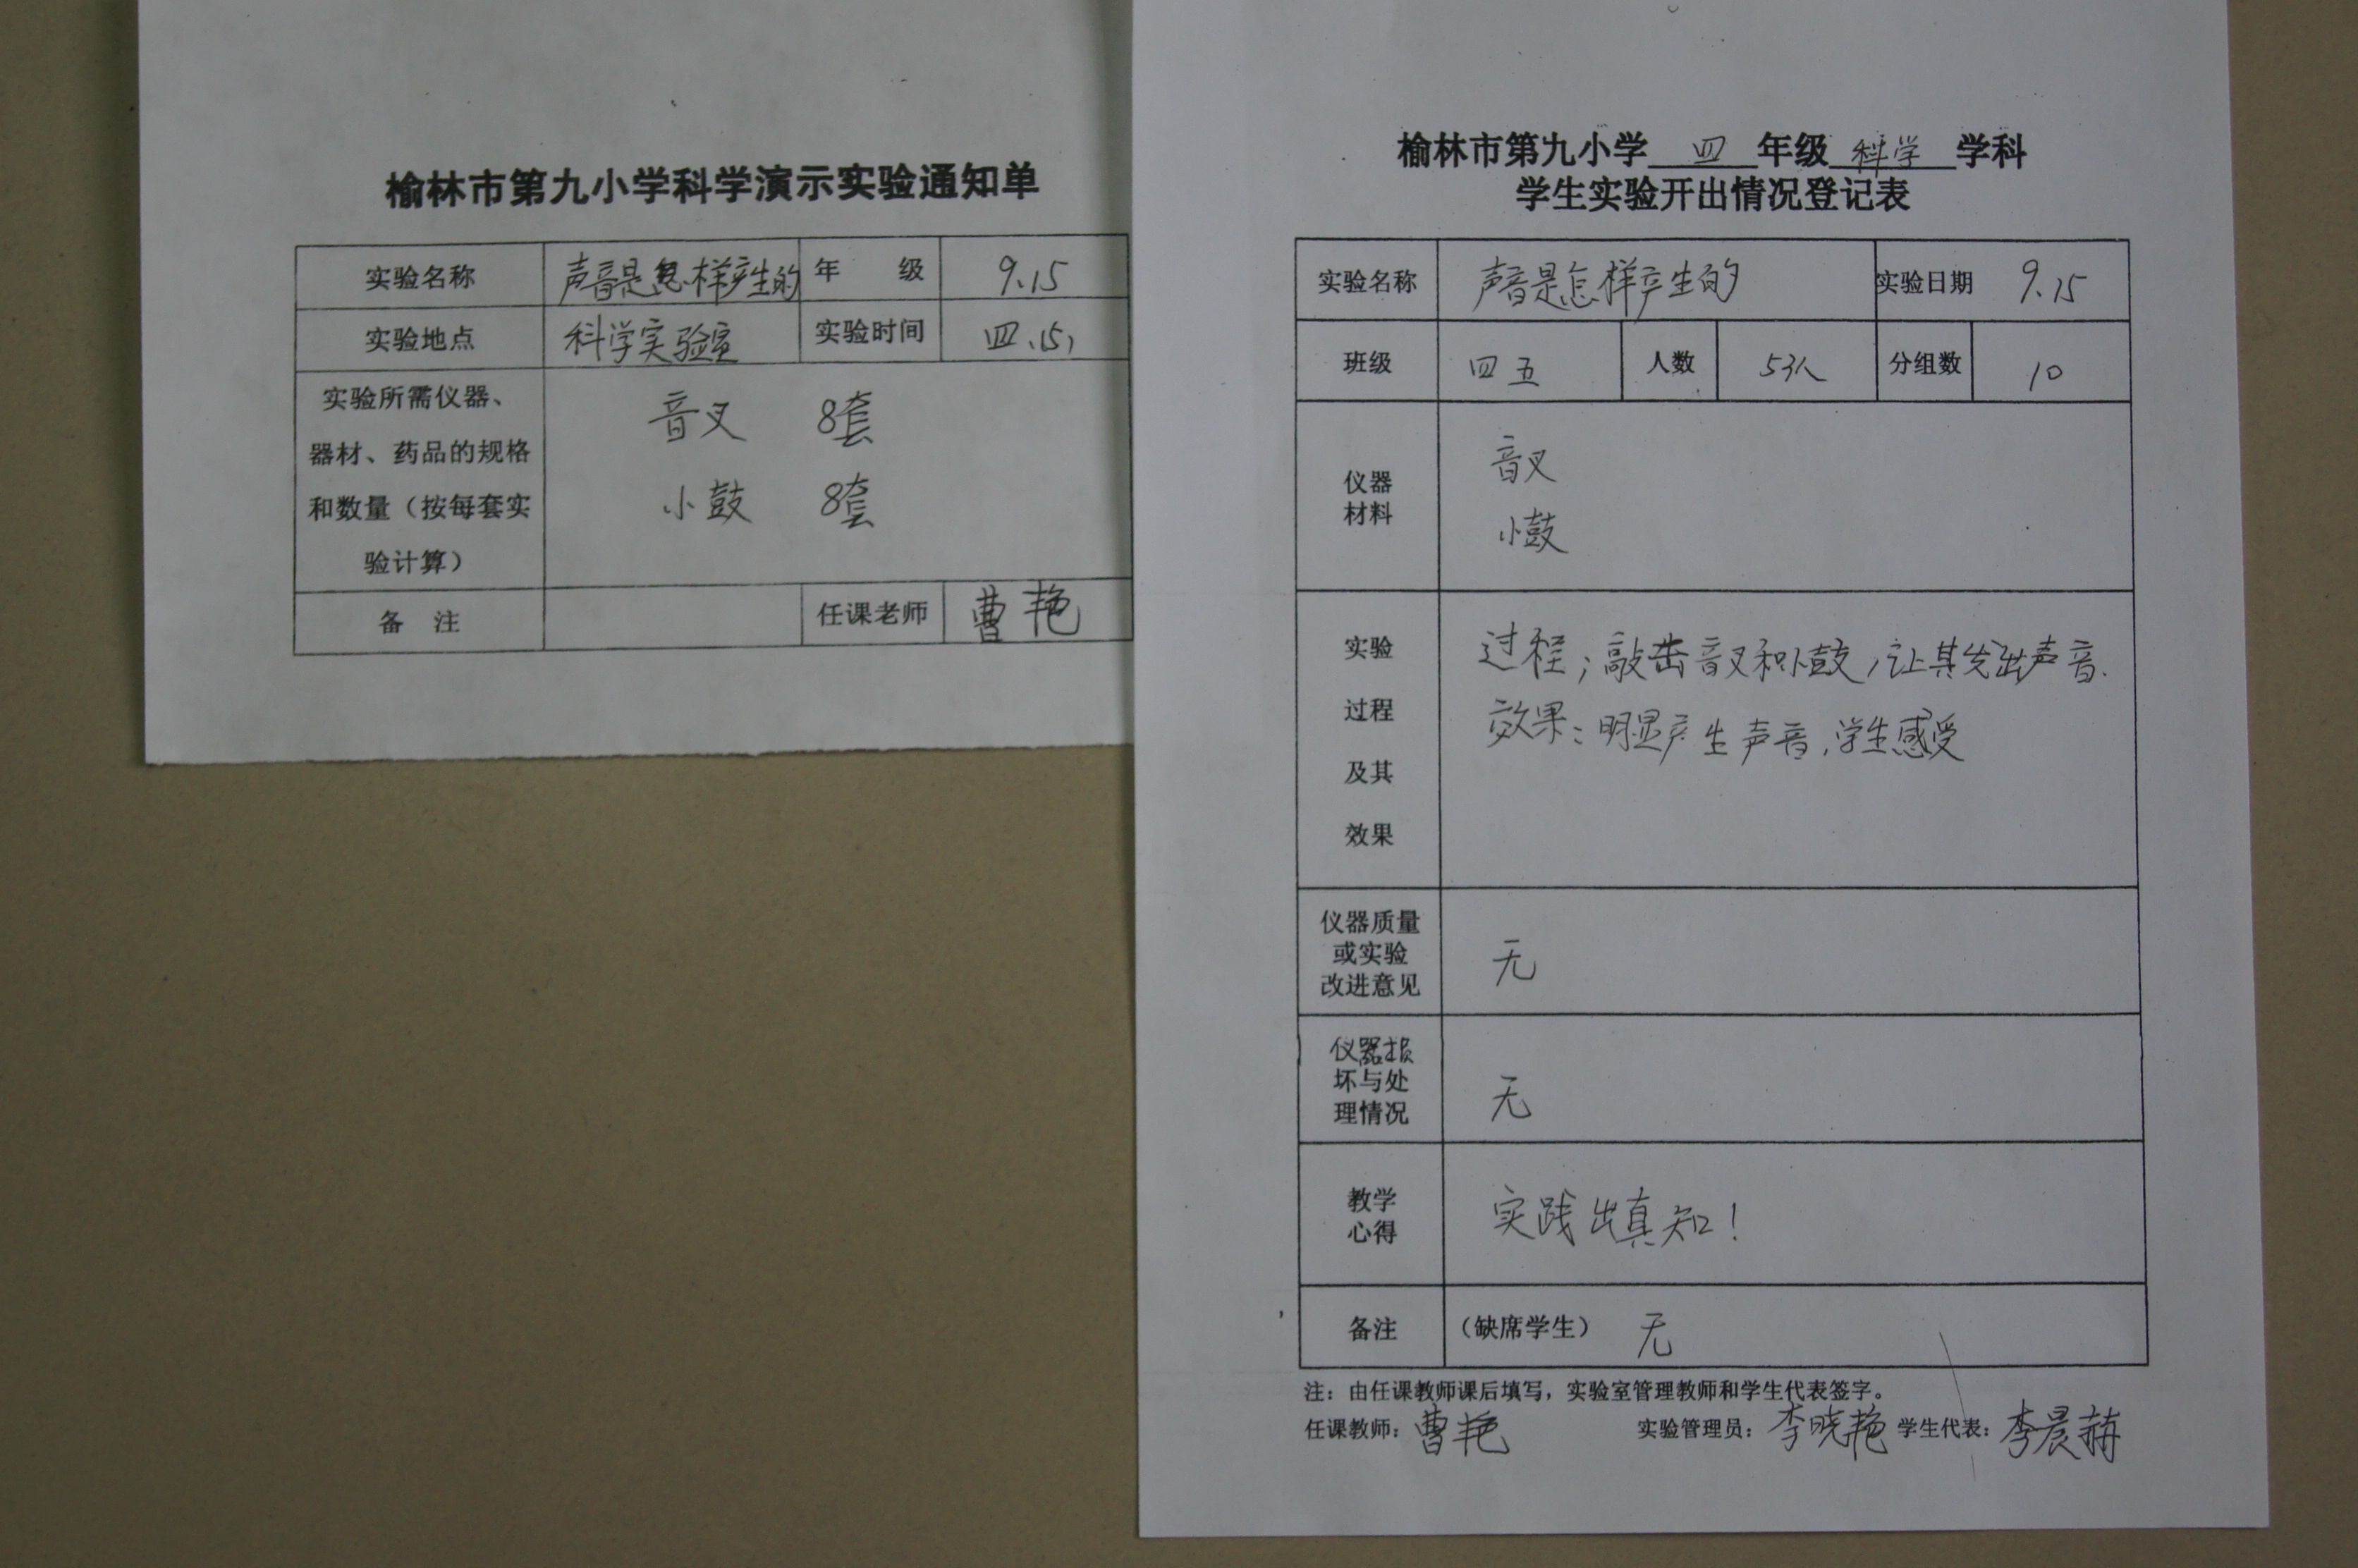 榆林市第九小学科学演示实验通知单
实验名称 声音是怎样产生的 年 级 9.15
实验地点 科学实验室 实验时间 四.(5)
实验所需仪器、
器材、药品的规格
和数量（按每套实
验计算）
音叉 8套
小鼓 8套
备 注 任课老师 曹艳
榆林市第九小学 四 年级 科学 学科
学生实验开出情况登记表
实验名称 声音是怎样产生的 实验日期 9.15
班级 四五 人数 53人 分组数 10
仪器
材料
音叉
小鼓
实验
过程
及其
效果
过程；敲击音叉和小鼓，让其发出声音.
效果：明显产生声音，学生感受
仪器质量
或实验
改进意见
无
仪器损
坏与处
理情况
无
教学
心得
实践出真知！
备注 （缺席学生） 无
注：由任课教师课后填写，实验室管理教师和学生代表签字。
任课教师：曹艳 实验管理员：李晓艳 学生代表：李晨